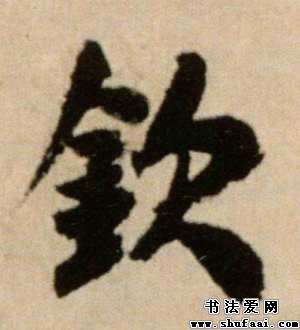 欽
书法爱网
www.shufaai.com